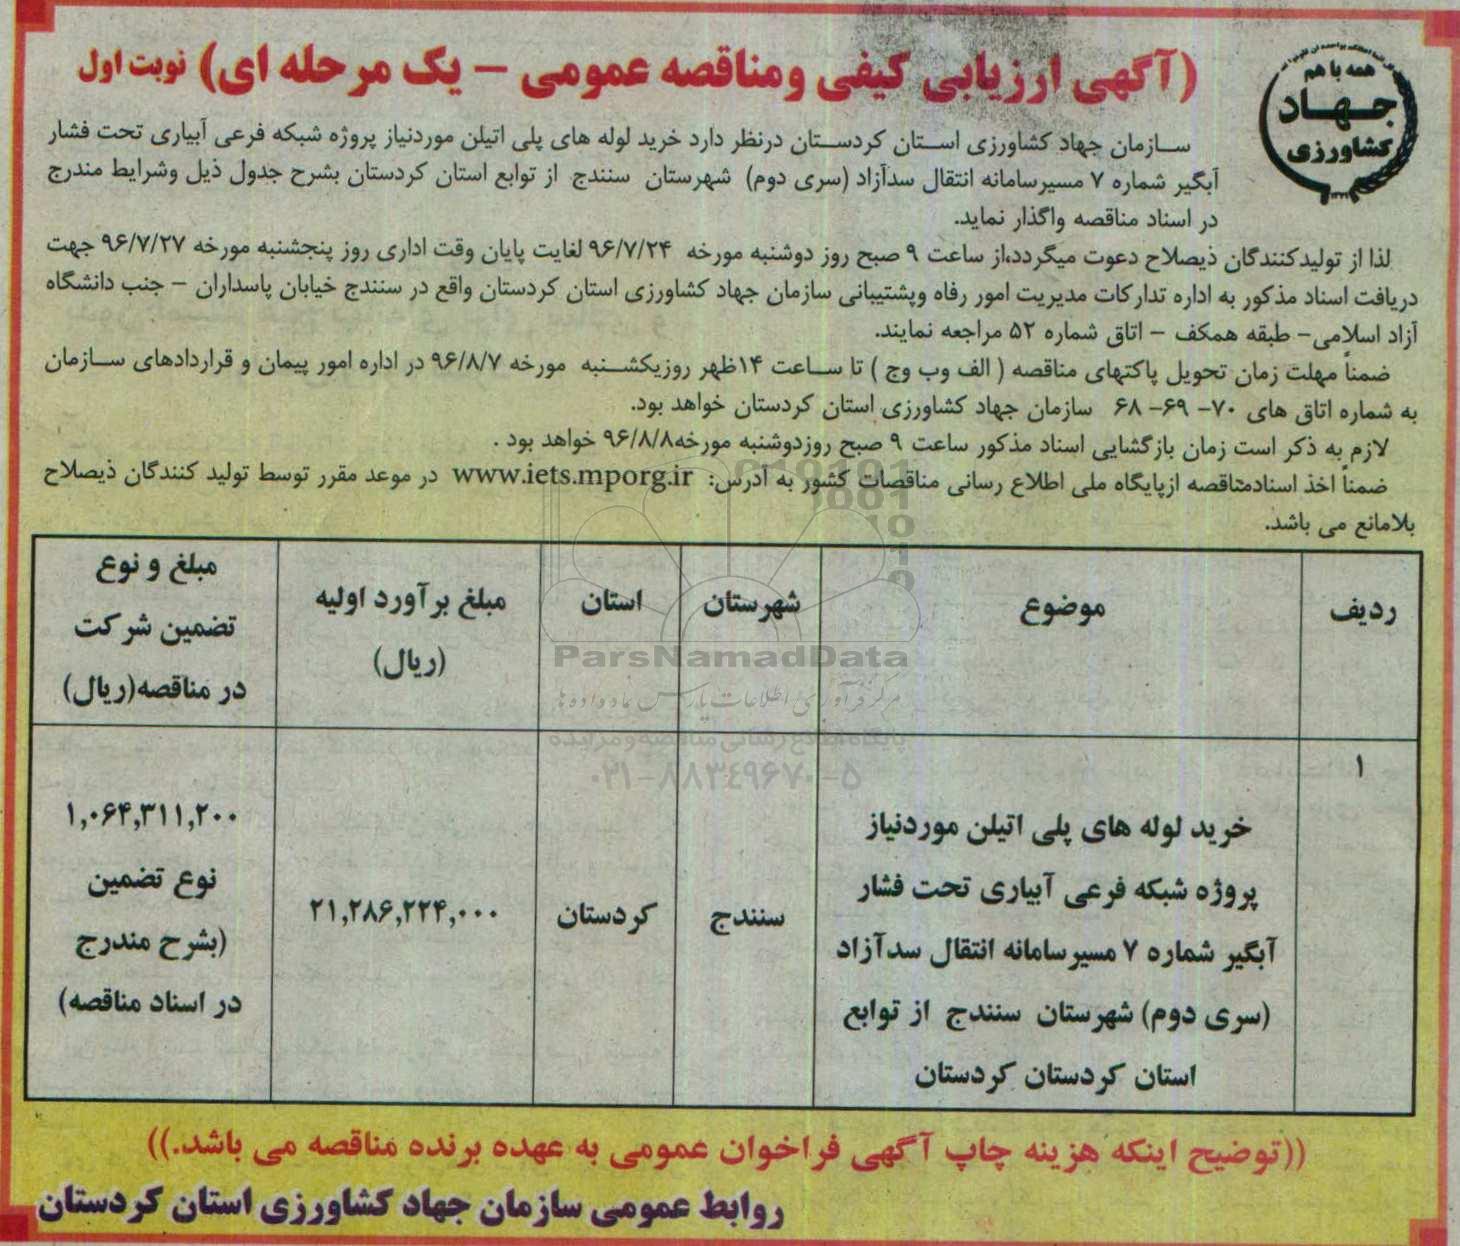 همه با هم
جهاد
کشاورزی
(آگهی ارزیابی کیفی ومناقصه عمومی – یک مرحله ای) نوبت اول
سازمان جهاد کشاورزی استان کردستان درنظر دارد خرید لوله های پلی اتیلن موردنیاز پروژه شبکه فرعی آبیاری تحت فشار
آبگیر شماره ۷ مسیرسامانه انتقال سدآزاد (سری دوم) شهرستان سنندج از توابع استان کردستان بشرح جدول ذیل وشرایط مندرج
در اسناد مناقصه واگذار نماید.
لذا از تولیدکنندگان ذیصلاح دعوت میگردد،از ساعت ۹ صبح روز دوشنبه مورخه ۹۶/۷/۲۴ لغایت پایان وقت اداری روز پنجشنبه مورخه ۹۶/۷/۲۷ جهت
دریافت اسناد مذکور به اداره تدارکات مدیریت امور رفاه وپشتیبانی سازمان جهاد کشاورزی استان کردستان واقع در سنندج خیابان پاسداران – جنب دانشگاه
آزاد اسلامی- طبقه همکف – اتاق شماره ۵۲ مراجعه نمایند.
ضمناً مهلت زمان تحویل پاکتهای مناقصه ( الف وب وج ) تا ساعت ۱۴ظهر روزیکشنبه مورخه ۹۶/۸/۷ در اداره امور پیمان و قراردادهای سازمان
به شماره اتاق های ۷۰- ۶۹- ۶۸ سازمان جهاد کشاورزی استان کردستان خواهد بود.
لازم به ذکر است زمان بازگشایی اسناد مذکور ساعت ۹ صبح روزدوشنبه مورخه۹۶/۸/۸ خواهد بود .
ضمناً اخذ اسنادمناقصه ازپایگاه ملی اطلاع رسانی مناقصات کشور به آدرس: www.iets.mporg.ir در موعد مقرر توسط تولید کنندگان ذیصلاح
بلامانع می باشد.
ردیف
موضوع
شهرستان
استان
مبلغ برآورد اولیه
(ریال)
مبلغ و نوع
تضمین شرکت
در مناقصه(ریال)
۱
خرید لوله های پلی اتیلن موردنیاز
پروژه شبکه فرعی آبیاری تحت فشار
آبگیر شماره ۷ مسیرسامانه انتقال سدآزاد
(سری دوم) شهرستان سنندج از توابع
استان کردستان کردستان
سنندج
کردستان
۲۱,۲۸۶,۲۲۴,۰۰۰
۱,۰۶۴,۳۱۱,۲۰۰
نوع تضمین
(بشرح مندرج
در اسناد مناقصه)
ParsNamadData
مرکز فرآوری اطلاعات پارس نماد داده ها
پایگاه اطلاع رسانی مناقصه و مزایده
۰۲۱-۸۸۳۴۹۶۷۰-۵
((توضیح اینکه هزینه چاپ آگهی فراخوان عمومی به عهده برنده مناقصه می باشد.))
روابط عمومی سازمان جهاد کشاورزی استان کردستان